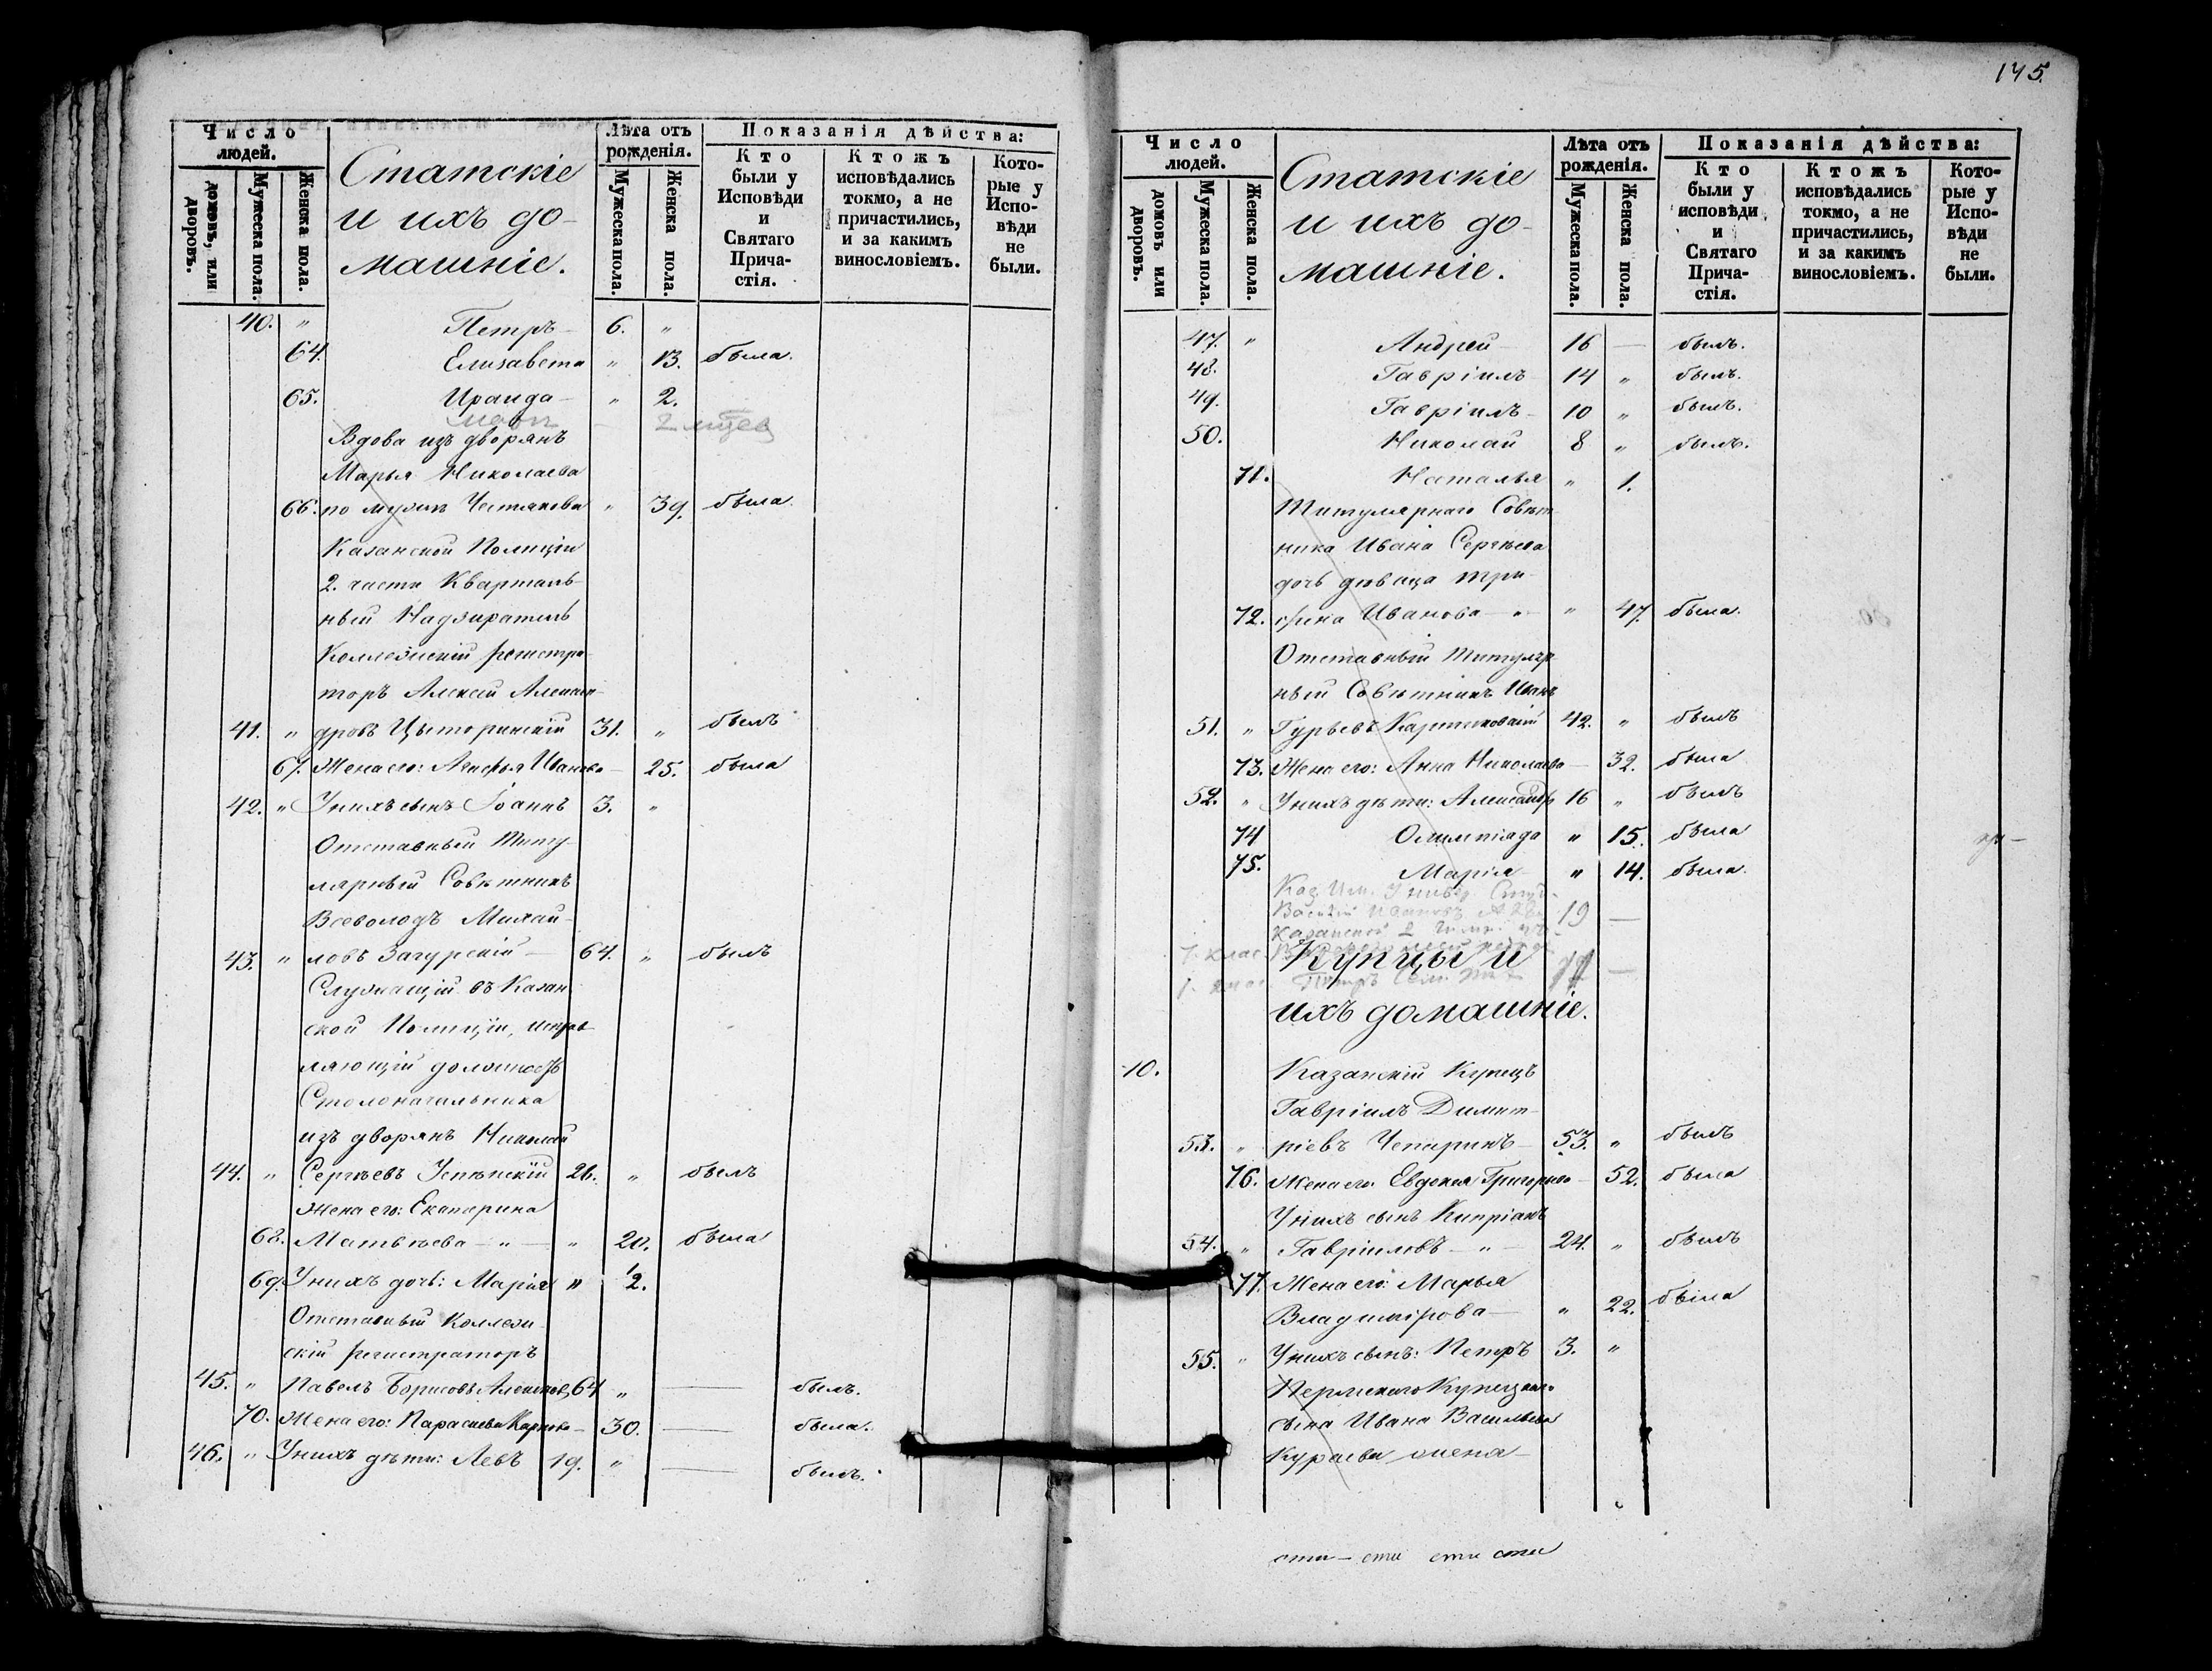 Число людей.
домовъ, или дворовъ.
Мужеска пола.
Женска пола.
Статскіе
и ихъ до-
машніе.
Лѣта отъ рожденія.
Мужеска пола.
Женска пола.
Показанія дѣйства:
Кто были у Исповѣди и Святаго Прича-стія.
Ктожъ исповѣдались токмо, а не причастились, и за какимъ винословіемъ.
Кото-рые у Испо-вѣди не были.
40. " Петръ 6. "
64. Елисавета " 13. была.
65. Ираида " 2.
2 мцев
Вдова изъ дворянъ
Марья Николаева
66. по мужѣ " 39. была.
Казанской Полиціи
2. части Кварталь-
ный Надзиратель
Коллежскій регистра-
торъ Алексей Алексан-
41. " дровъ 31. " былъ
67. Жена его: Агафья Иванова 25. была
42. " У нихъ сынъ Іоаннъ 3. "
Отставный Титу-
лярный Совѣтникъ
Всеволодъ Михай-
43. " ловъ Загурскій 64. " былъ
Служащій въ Казан-
ской Полиціи, исправ-
ляющій должность
Столоначальника
изъ дворянъ Николай
44. " Сергѣевъ Успѣнскій 26. " былъ
Жена его: Екатерина
68. Матвѣева " " 20. была
69. У нихъ дочь: Марія " 1/2.
Отставный Коллеж-
скій регистраторъ
45. " Павелъ Борисовъ 64 " былъ.
70. Жена его: Параскева Карпова 30. была.
46. " У нихъ дѣти: Левъ 19. " былъ.
175.
Число людей.
домовъ или дворовъ.
Мужеска пола.
Женска пола.
Статскіе
и ихъ до-
машніе.
Лѣта отъ рожденія.
Мужеска пола.
Женска пола.
Показанія дѣйства:
Кто были у исповѣди и Святаго Прича-стія.
Ктожъ исповѣдались токмо, а не причастились, и за какимъ винословіемъ.
Кото-рые у Испо-вѣди не были.
47. " Андрей 16 — былъ.
48. Гавріилъ 14 " былъ.
49. Гавріилъ 10 " былъ.
50. Николай 8 " былъ.
71. Наталья " 1.
Титулярнаго Совѣт-
ника Ивана Сергѣева
дочь дѣвица Три-
72. фина Иванова " " 47. была.
Отставный Титуляр-
ный Совѣтникъ Иванъ
51. " Гурьевъ 42. " былъ
73. Жена его: Анна Николаева 32. была
52. " У нихъ дѣти: Александръ 16 " былъ
74 Олимпіада " 15. была
75. Марія " 14. была.
Каз. Им. Универ. Студ.
Василій 19 —
Казанской 2
7. клас.
Купцы и
ихъ домашніе.
10. Казанскій Купецъ
Гавріилъ Димит-
53. " ріевъ Чепаринъ 53. " былъ
76. Жена его: Евдокия Григорьева 52. была
У нихъ сынъ Кипріанъ
54. " Гавріиловъ " 24. " былъ
77. Жена его: Марья
Владимірова " 22. была
55. " У нихъ сынъ: Петръ 3. "
Пермскаго Купецкаго
сына Ивана Васильева
Кураева жена
сти — сти сти сти